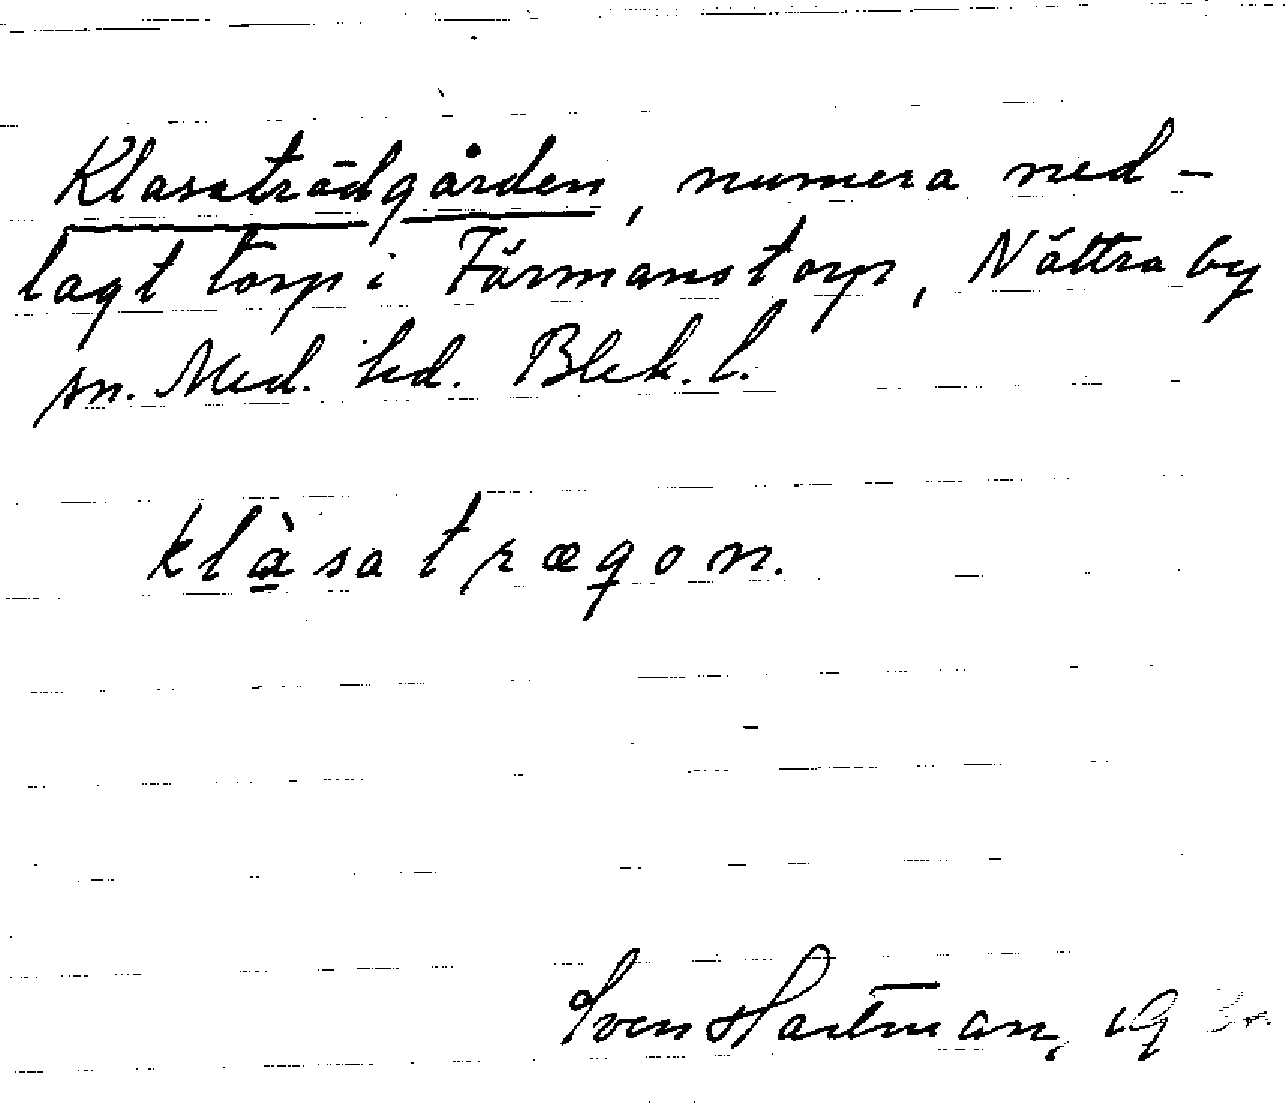 Klasaträdgården, numera ned-
lagt torp i Färmanstorp, Nättraby
sn. Med. hd. Blek. l.
klàsatrægon.
Sven Hartman, 19